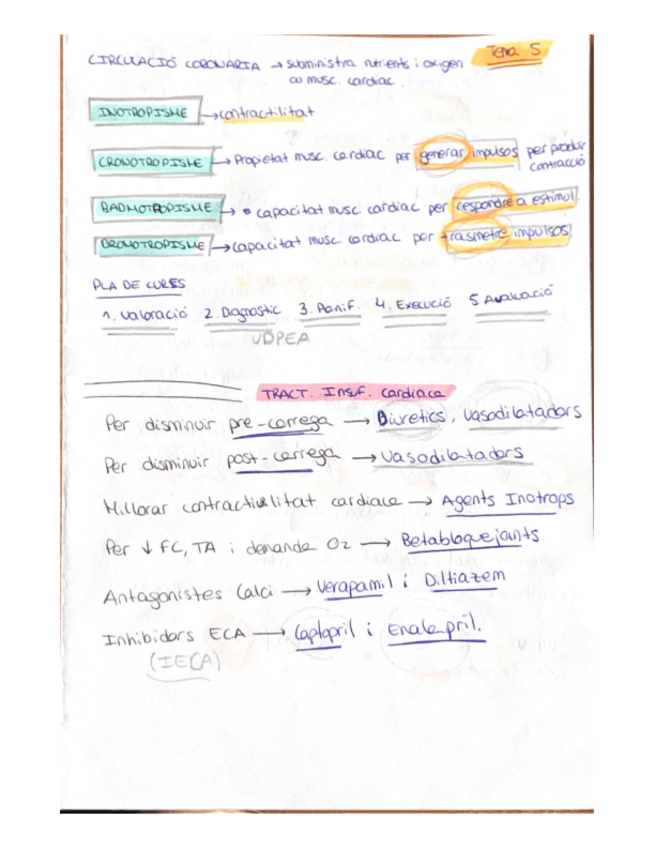 Tema 5
CIRCULACIÓ CORONARIA → subministra nutrients i oxigen
au musc. cardiac.
INOTROPISME → contractilitat
CRONOTROPISME → Propietat musc. cardiac per generar impulsos per produir
contracció
BADMOTROPISME → • capacitat musc cardiac per respondre a estimul.
DROMOTROPISME → capacitat musc cardiac per trasmetre impulsos
PLA DE CURES
1. Valoració 2. Dagnostic 3. Planif. 4. Execució 5 Avaluació
VDPEA
TRACT. Insuf. Cardiaca
Per disminuir pre-carrega → Diuretics, Vasodilatadors
Per disminuir post-carrega → Vasodilatadors
Millorar contractilitat cardiaca → Agents Inotrops
Per ↓ FC, TA i demanda O2 → Betabloquejants
Antagonistes Calci → Verapamil i Diltiazem
Inhibidors ECA → Captopril i Enalapril.
(IECA)